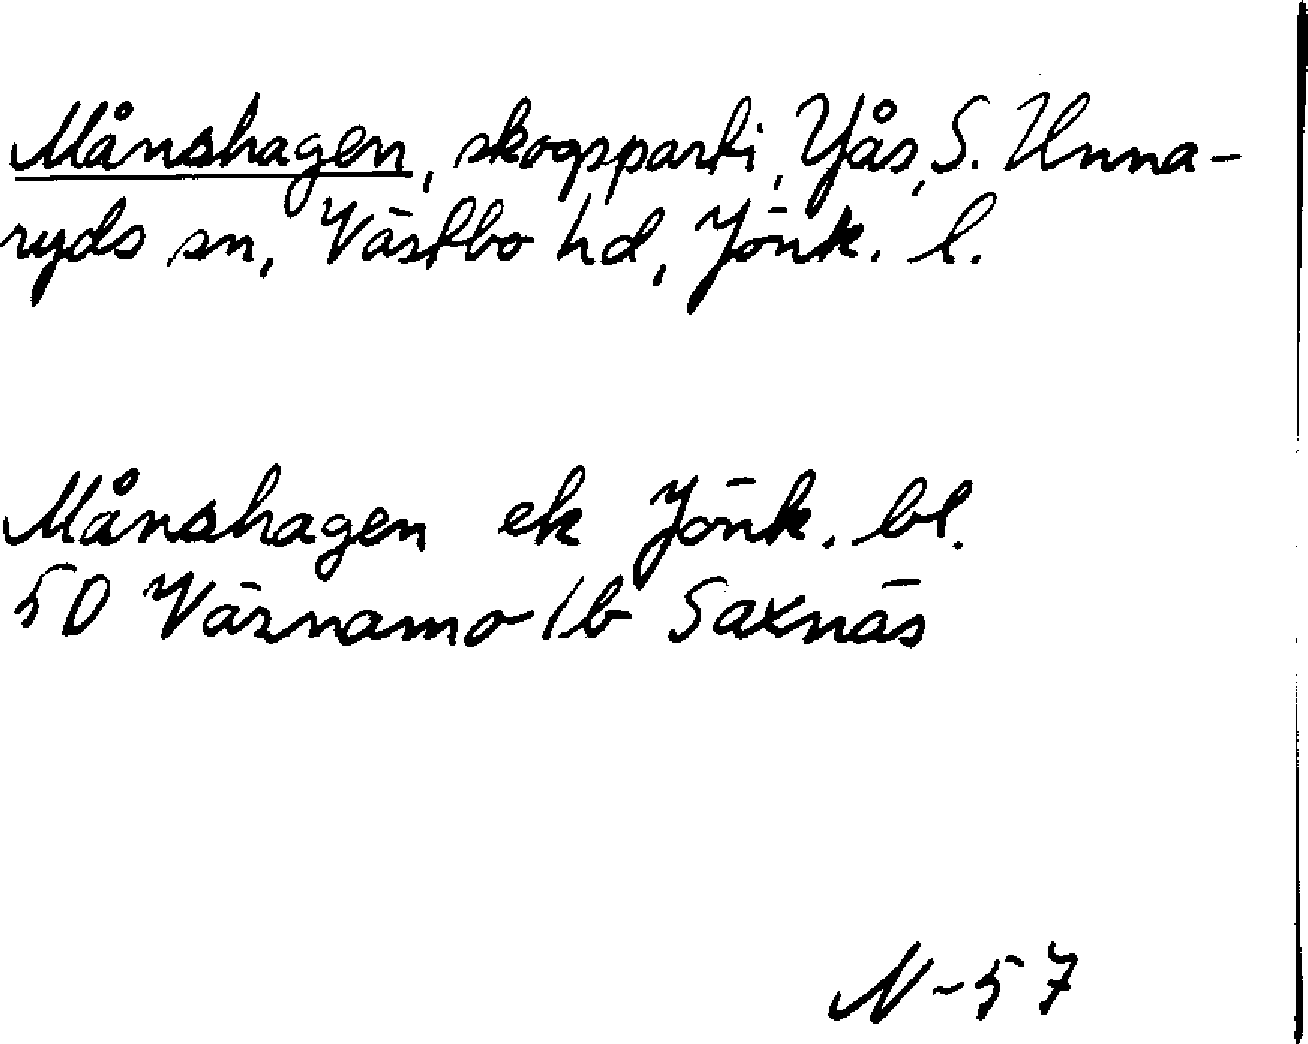 Månshagen, skogsparti, Yås, S. Unna-
ryds sn, Västbo hd, Jönk. l.
Månshagen ek Jönk. bl.
5D Värnamo 1b Saxnäs
N-57